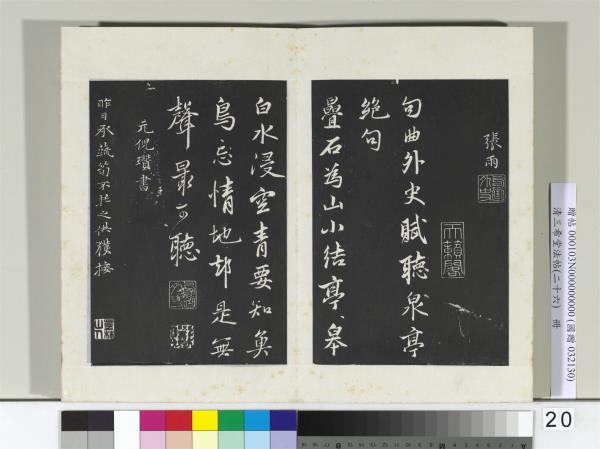 句曲外史賦聽泉亭
絕句
疊石為山小結亭、皋
張雨
白水浸空青要知魚
鳥忘情地却是無
聲最可聽
元倪瓚書
昨日承蔬筍不托之供獲接
贈帖 000103N000000000 (國贈 032130)
清三希堂法帖(二十六) 冊
20